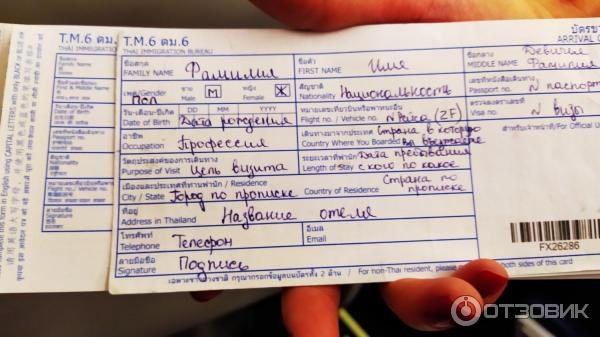 T.M.6 ตม.6
THAI IMMIGRATION BUREAU
T.M.6 ตม.6
THAI IMMIGRATION BUREAU
บัตรขา
ARRIVAL C
ชื่อสกุล
FAMILY NAME Фамилия
ชื่อตัว
FIRST NAME Имя
ชื่อกลาง Девичья
MIDDLE NAME Фамилия
เพศ/Gender Пол
ชาย
Male M
หญิง
Female Ж
สัญชาติ
Nationality Национальность
เลขที่หนังสือเดินทาง
Passport no. № паспорт
วัน-เดือน-ปีเกิด
Date of Birth
DD MM YYYY
Дата рождения
หมายเลขเที่ยวบินหรือพาหนะอื่น
Flight no. / Vehicle no. № Рейса (ZF)
ตรวจลงตราเลขที่
Visa no. № визы
อาชีพ
Occupation Профессия
เดินทางมาจากประเทศ Страна в которой
Country Where You Boarded вы
สำหรับเจ้าหน้าที่/For Official U
วัตถุประสงค์ของการเดินทาง
Purpose of Visit Цель визита
ระยะเวลาที่พำนัก Дата пребывания
Length of Stay с какого по какое
เมืองและประเทศที่ท่านพำนัก / Residence
City / State Город по прописке
Country of Residence Страна по прописке
ที่อยู่
Address in Thailand Название отеля
โทรศัพท์
Telephone Телефон
อีเมล
Email
ลายมือชื่อ
Signature Подпись
FX26286
เฉพาะชาวต่างชาติ กรุณากรอกข้อมูลบนบัตรทั้ง 2 ด้าน / For non-Thai resident,
both sides of this card
ОТЗОВИК